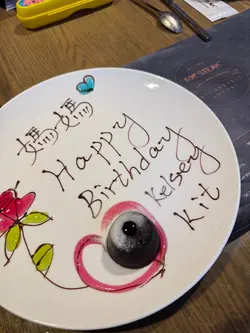 媽媽
Happy
Birthday
Kelsey
Kit
STEAK